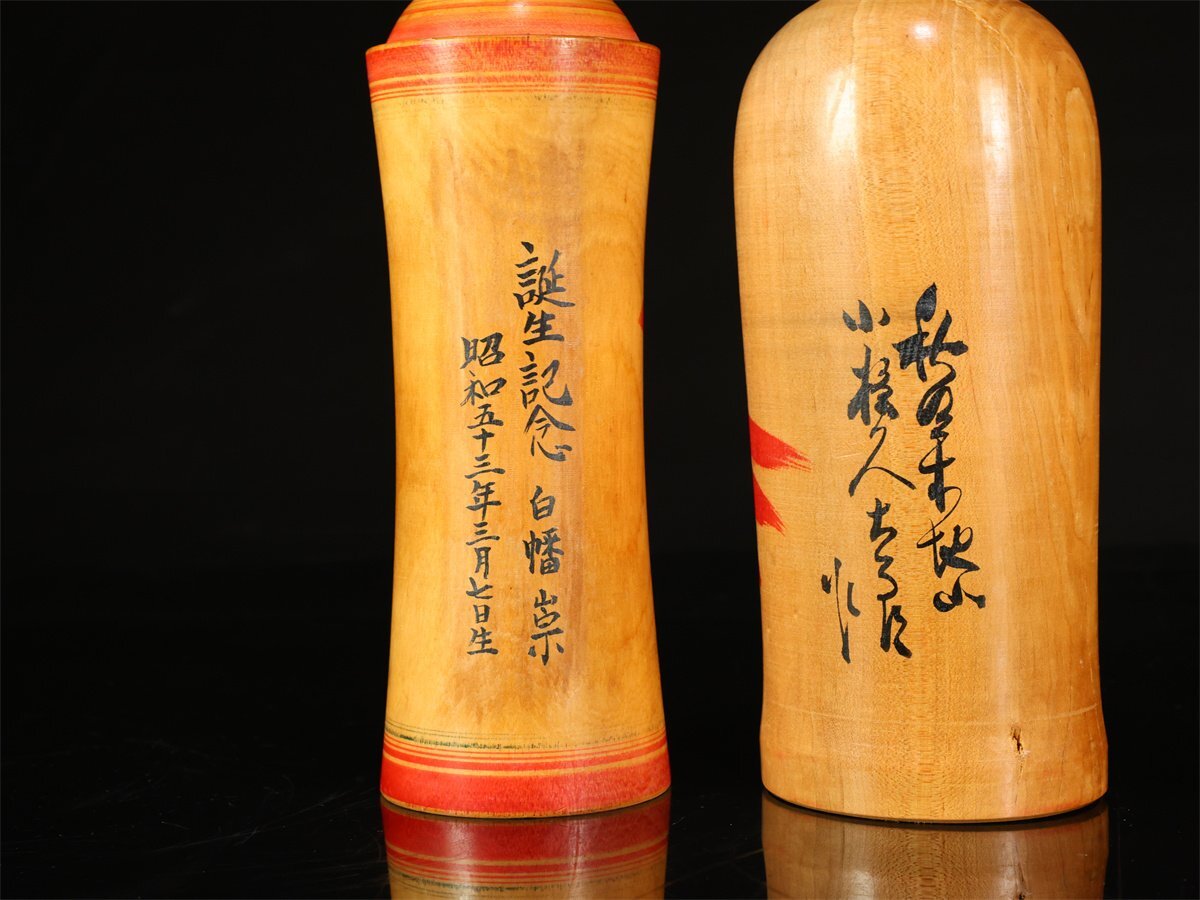 誕生記念 白幡崇
昭和五十三年三月七日生
秋田木地山
小椋久太郎
作